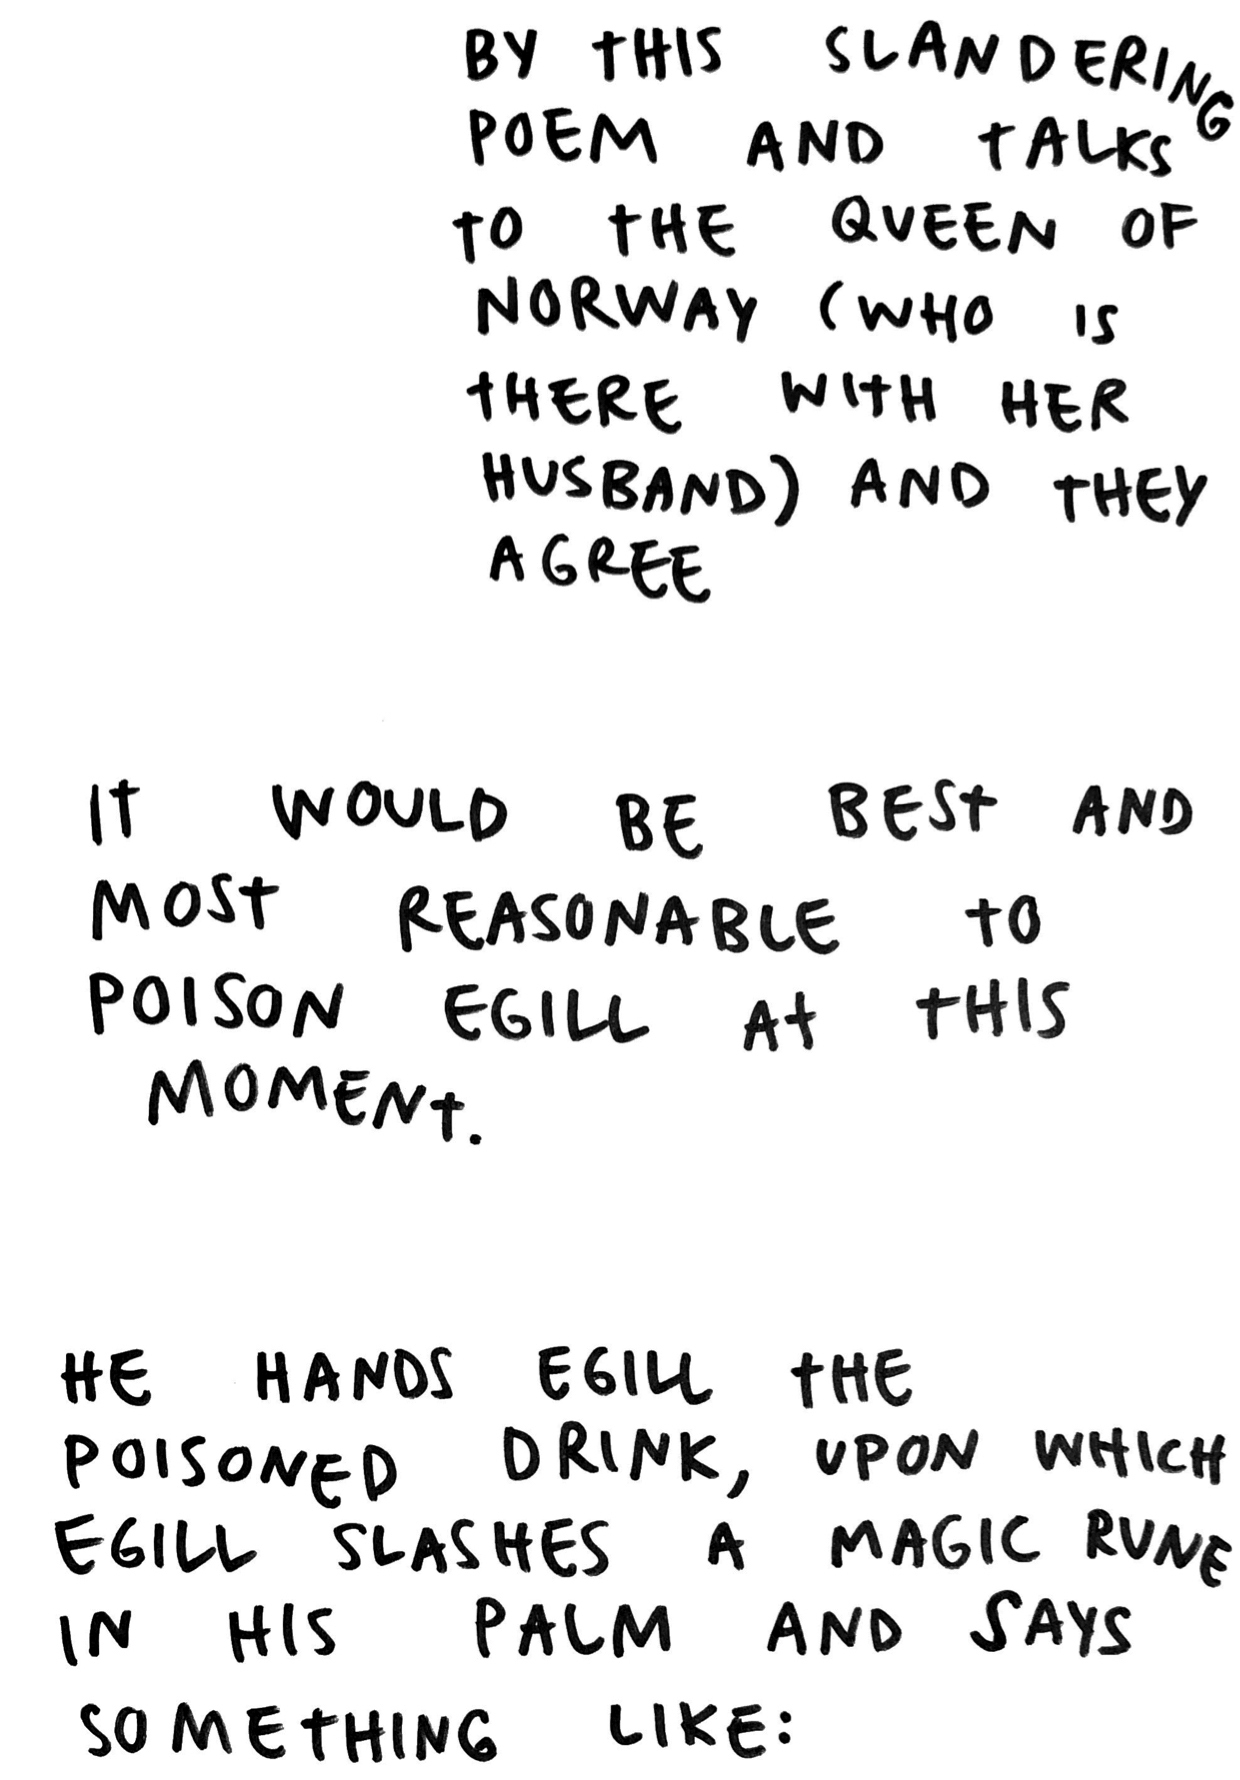 BY THIS SLANDERING
POEM AND TALKS
TO THE QUEEN OF
NORWAY (WHO IS
THERE WITH HER
HUSBAND) AND THEY
AGREE
IT WOULD BE BEST AND
MOST REASONABLE TO
POISON EGILL AT THIS
MOMENT.
HE HANDS EGILL THE
POISONED DRINK, UPON WHICH
EGILL SLASHES A MAGIC RUNE
IN HIS PALM AND SAYS
SOMETHING LIKE: